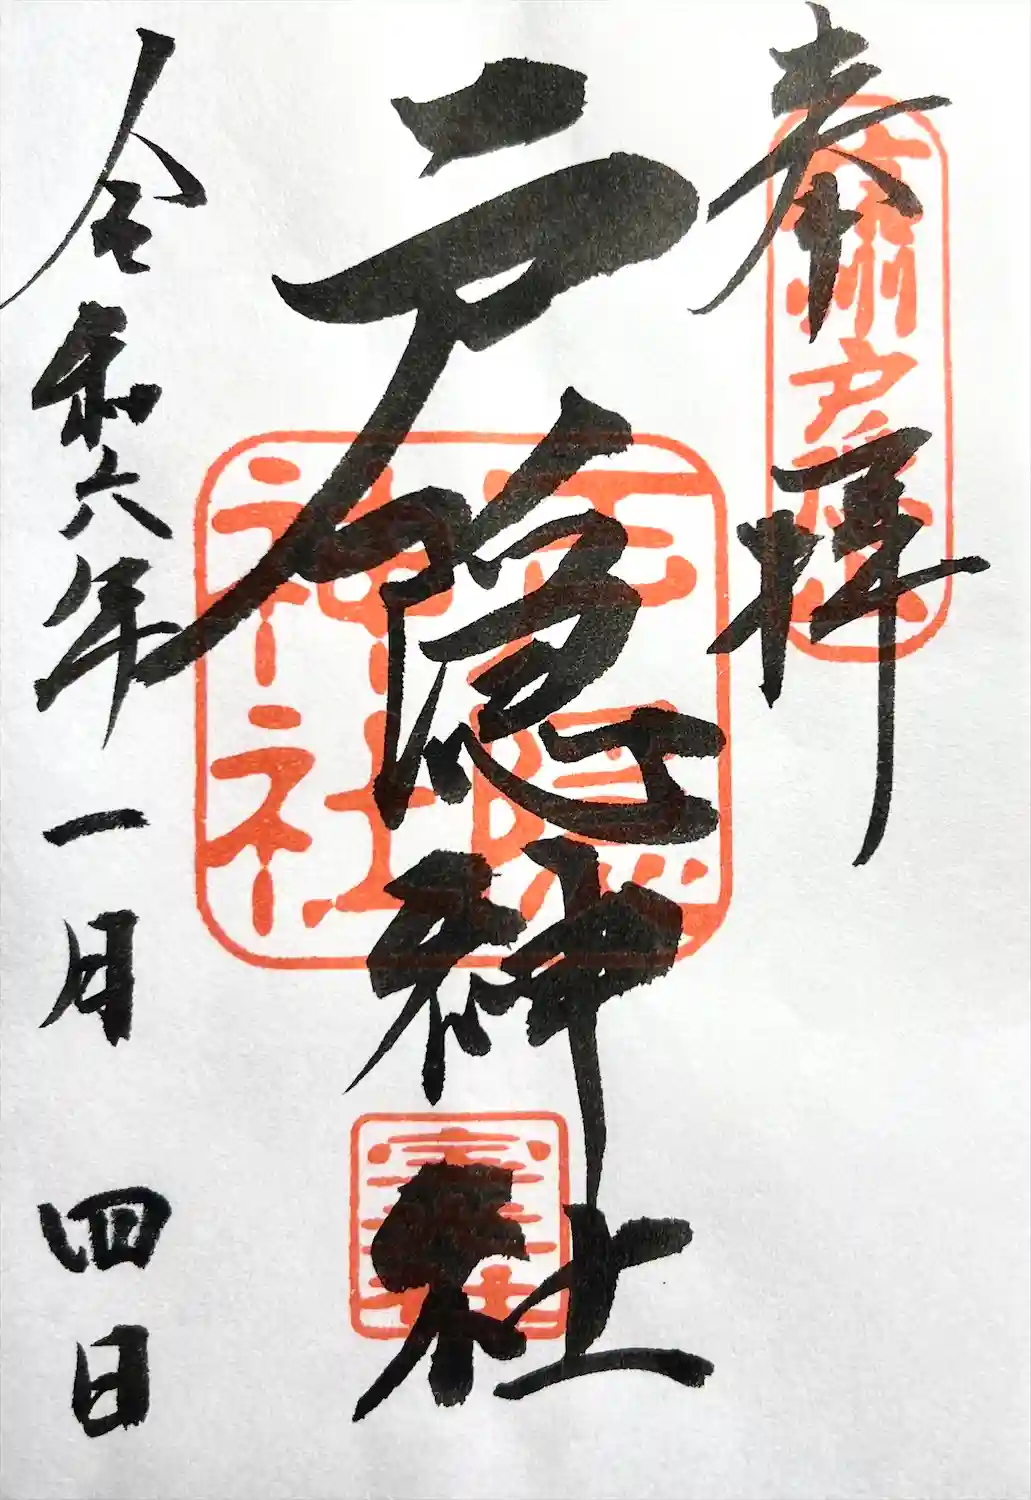 奉拝
戸隠神社
令和六年一月四日
戸隠神社